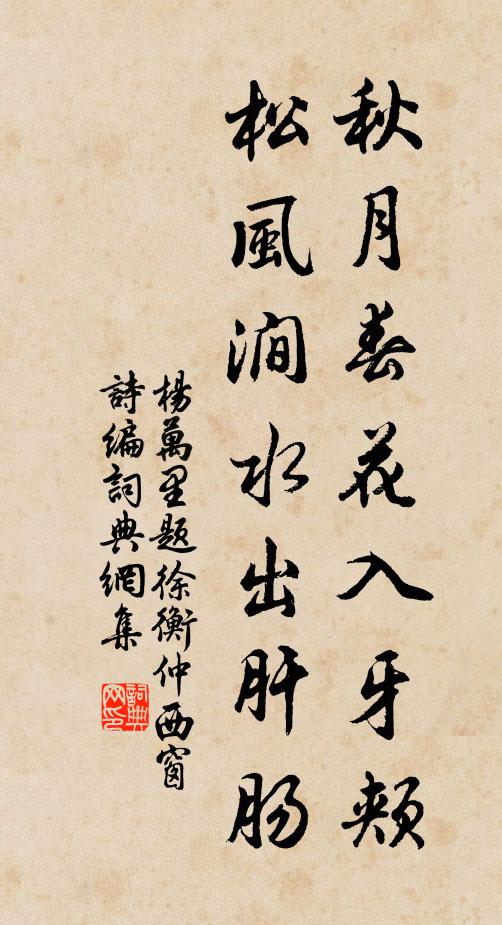 秋月春花入牙頰
松風澗水出肝腸
楊萬里題徐衡仲西窗
詩編詞典網集
詞典网印